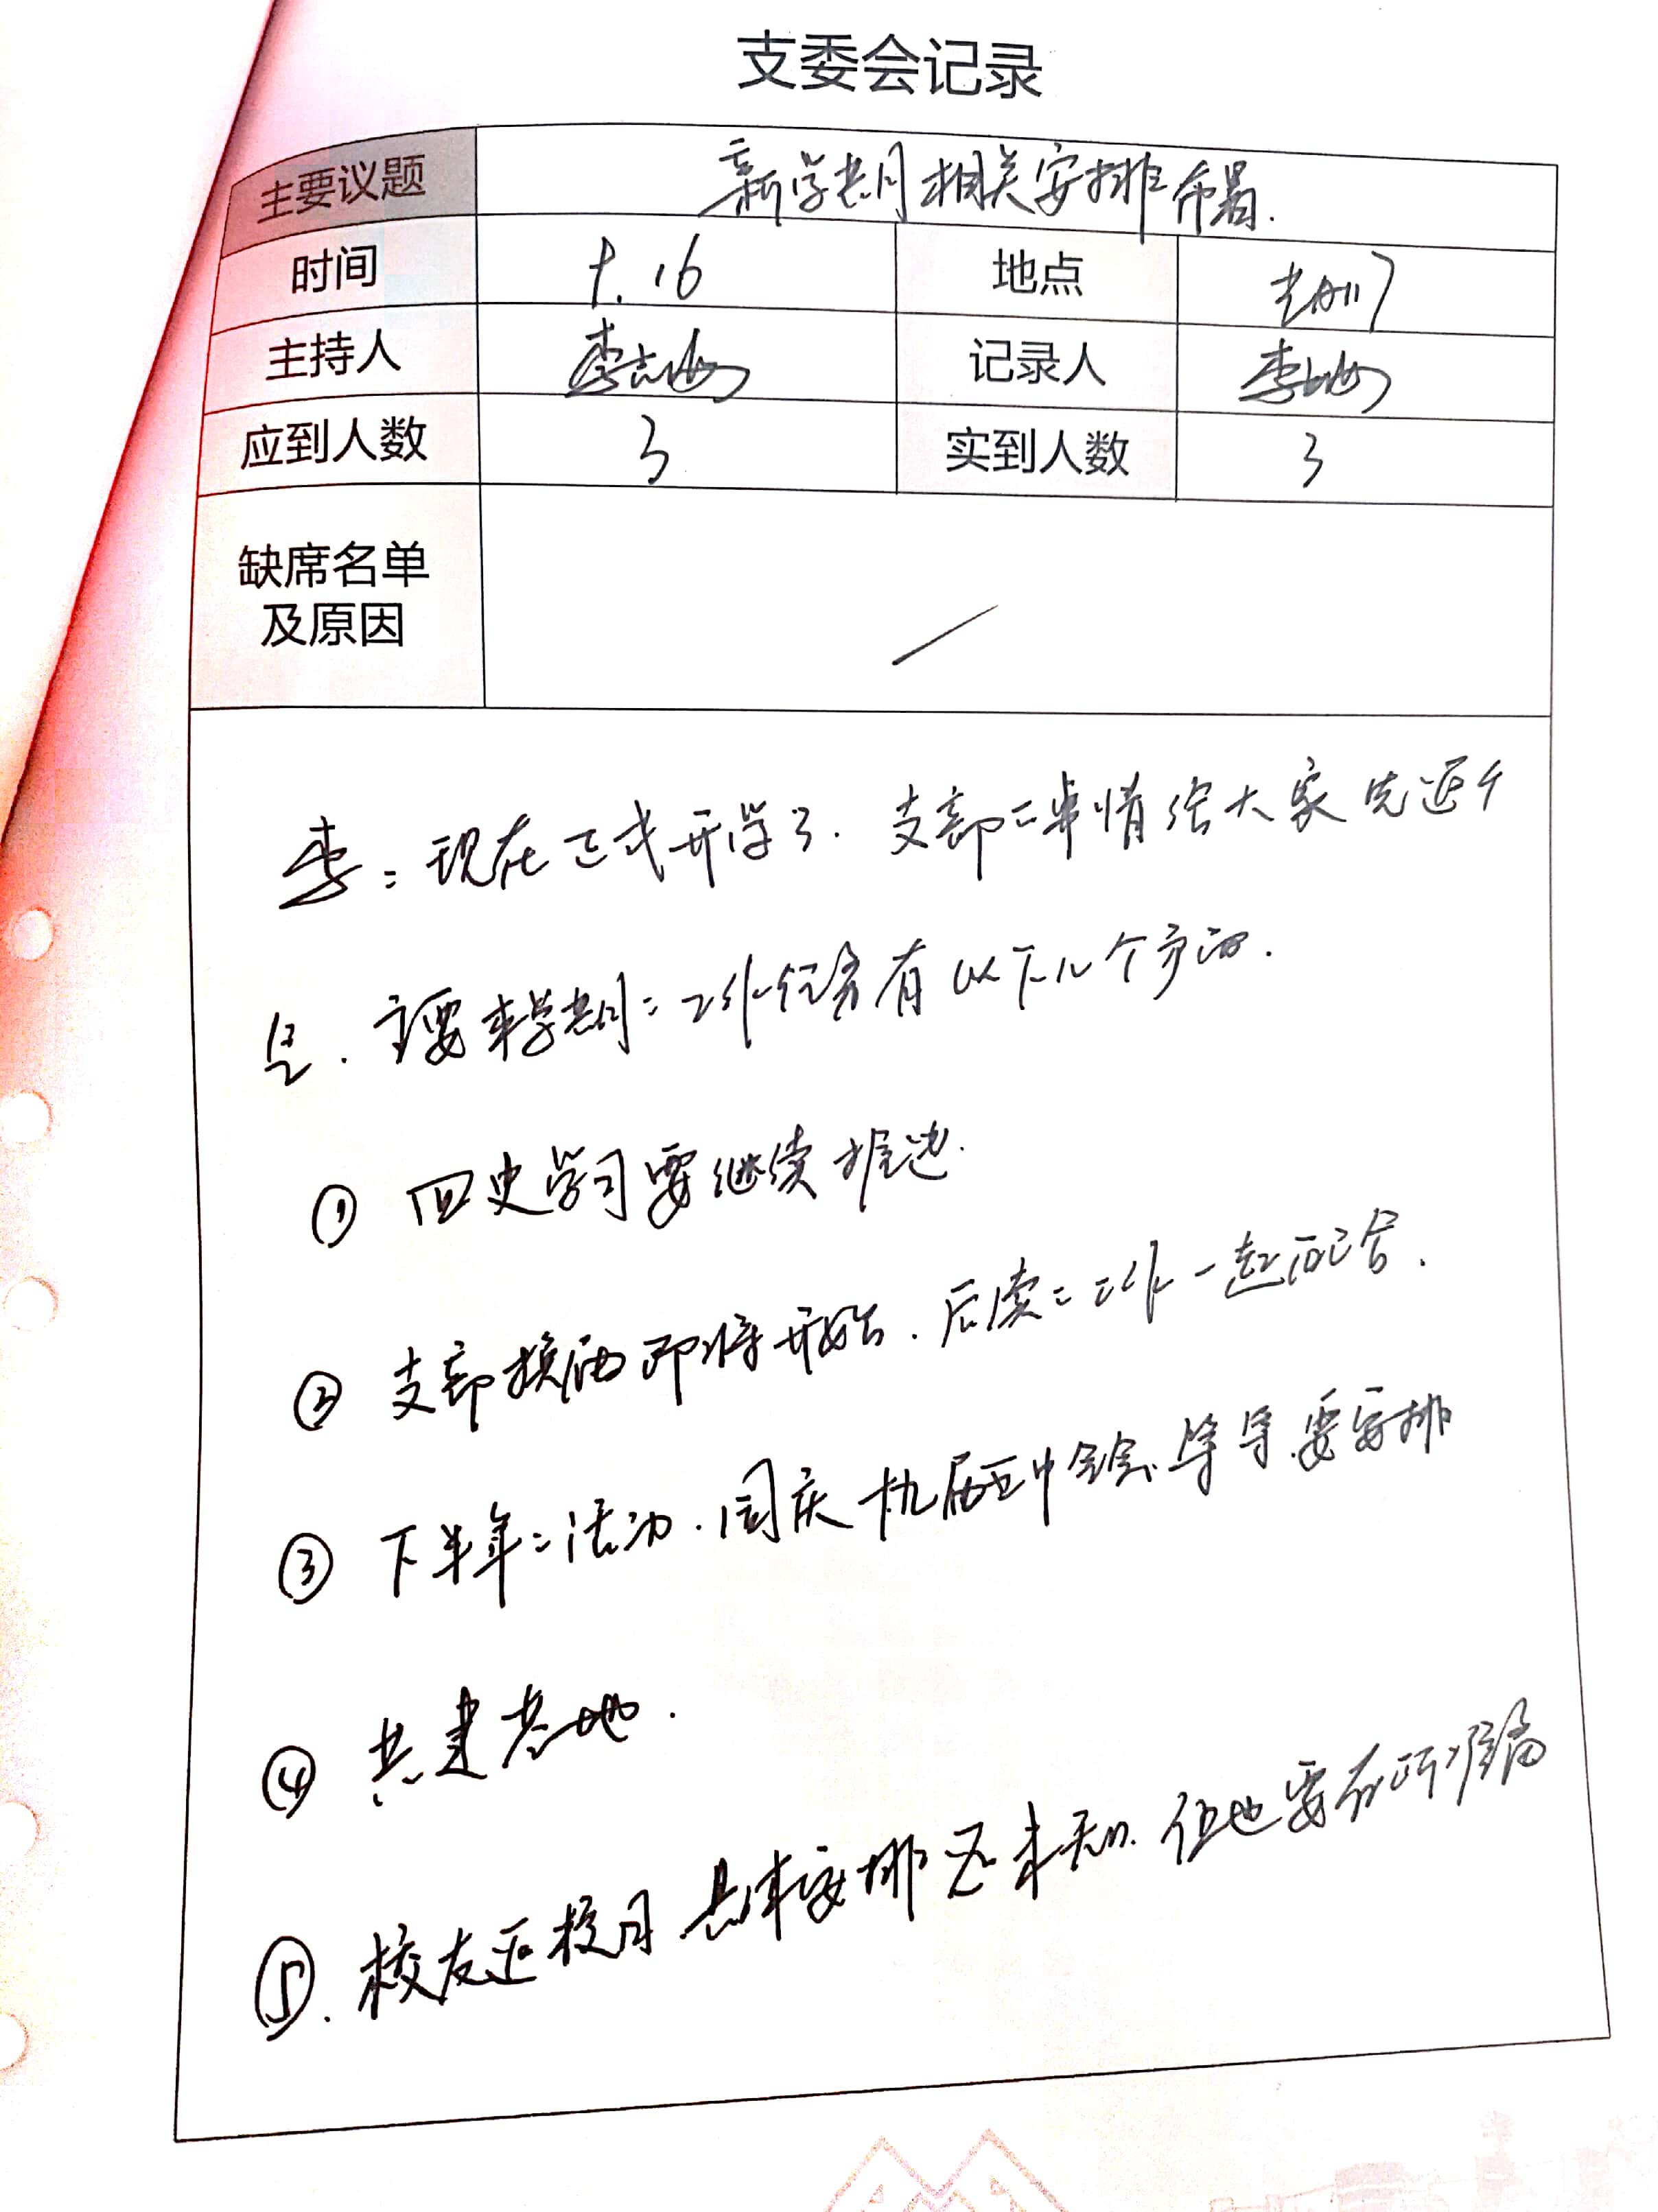 支委会记录
主要议题 新学期相关安排布署.
时间 9.16 地点
主持人 李志 记录人 李
应到人数 3 实到人数 3
缺席名单
及原因 /
李:现在正式开学了.支部二事情给大家先通个
气.主要本学期二工作任务有以下几个方面.
① 四史学习要继续推进.
② 支部换届即将开始.后续二工作一起配合.
③ 下半年二活动.国庆 十九届五中全会等等要安排
④ 共建基地.
⑤.校友返校日 具体安排还未知.但也要有所准备